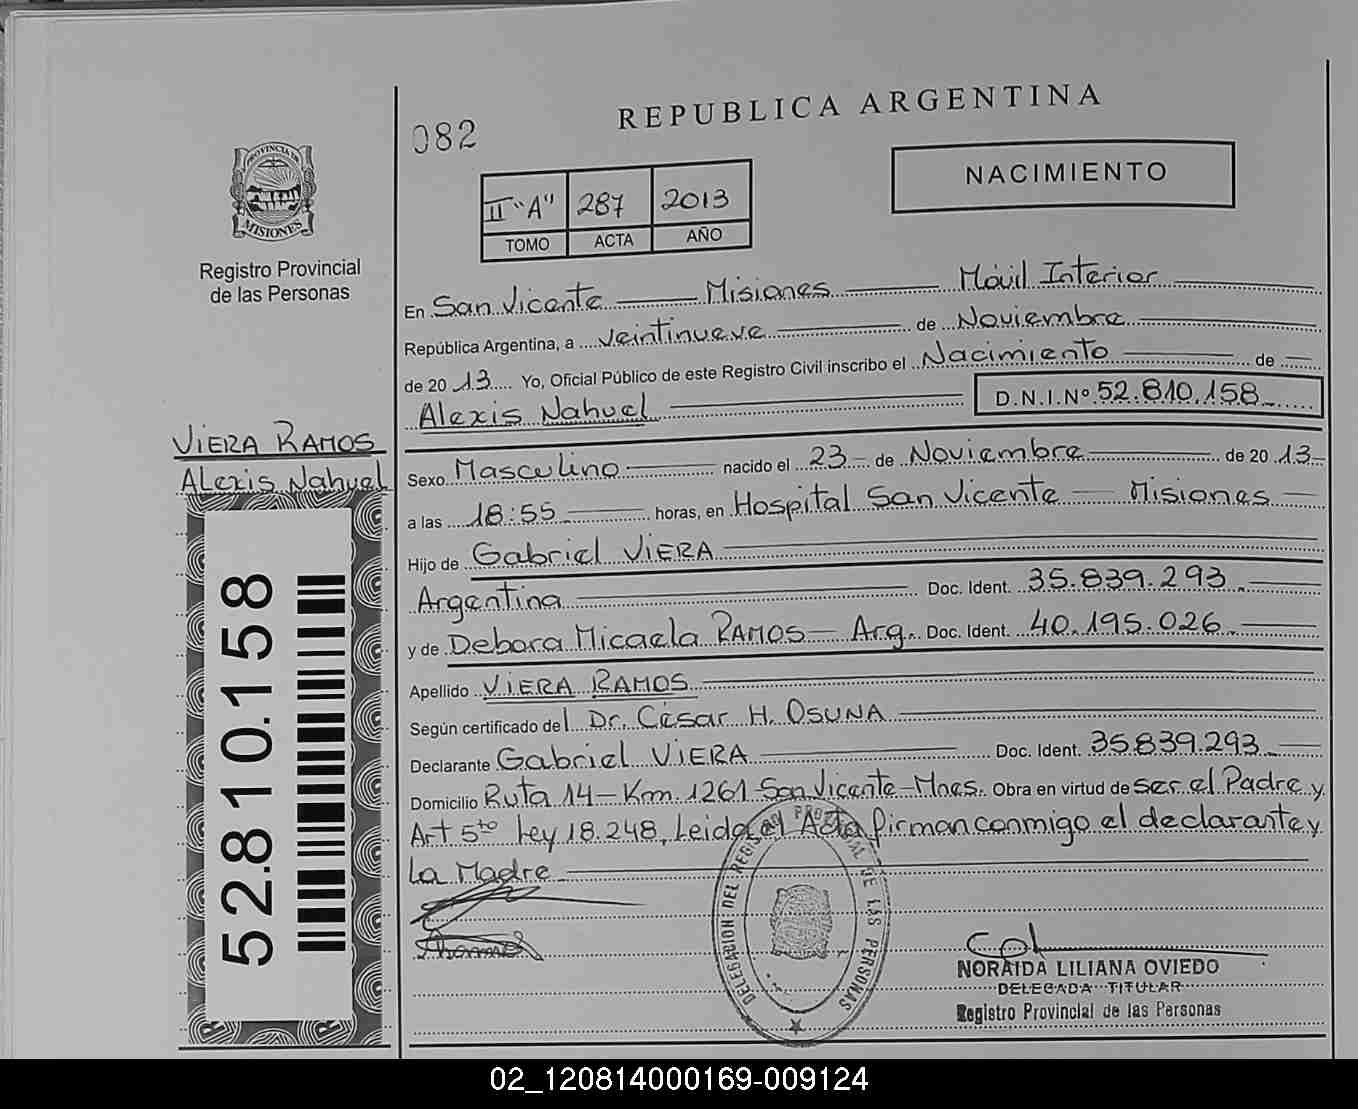 082
REPUBLICA ARGENTINA
NACIMIENTO
II "A" 287 2013
TOMO ACTA AÑO
PROVINCIA DE
MISIONES
Registro Provincial
de las Personas
VIERA RAMOS
Alexis Nahuel
52.810.158
En San Vicente Misiones Móvil Interior
República Argentina, a veintinueve de Noviembre
de 20 13 Yo, Oficial Público de este Registro Civil inscribo el Nacimiento de
Alexis Nahuel D.N.I.Nº 52.810.158
Sexo Masculino nacido el 23 de Noviembre de 20 13
a las 18:55 horas, en Hospital San Vicente Misiones
Hijo de Gabriel VIERA
Argentina Doc. Ident. 35.839.293
y de Debora Micaela RAMOS Arg. Doc. Ident. 40.195.026
Apellido VIERA RAMOS
Según certificado del Dr. César H. OSUNA
Declarante Gabriel VIERA Doc. Ident. 35.839.293
Domicilio Ruta 14 - Km 1261 San Vicente - Mnes. Obra en virtud de ser el Padre y
Art 5to Ley 18.248, Leida el Acta firman conmigo el declarante y
La Madre
DELEGACION DEL REGISTRO PROVINCIAL DE LAS PERSONAS
NORAIDA LILIANA OVIEDO
DELEGADA TITULAR
Registro Provincial de las Personas
02_120814000169-009124